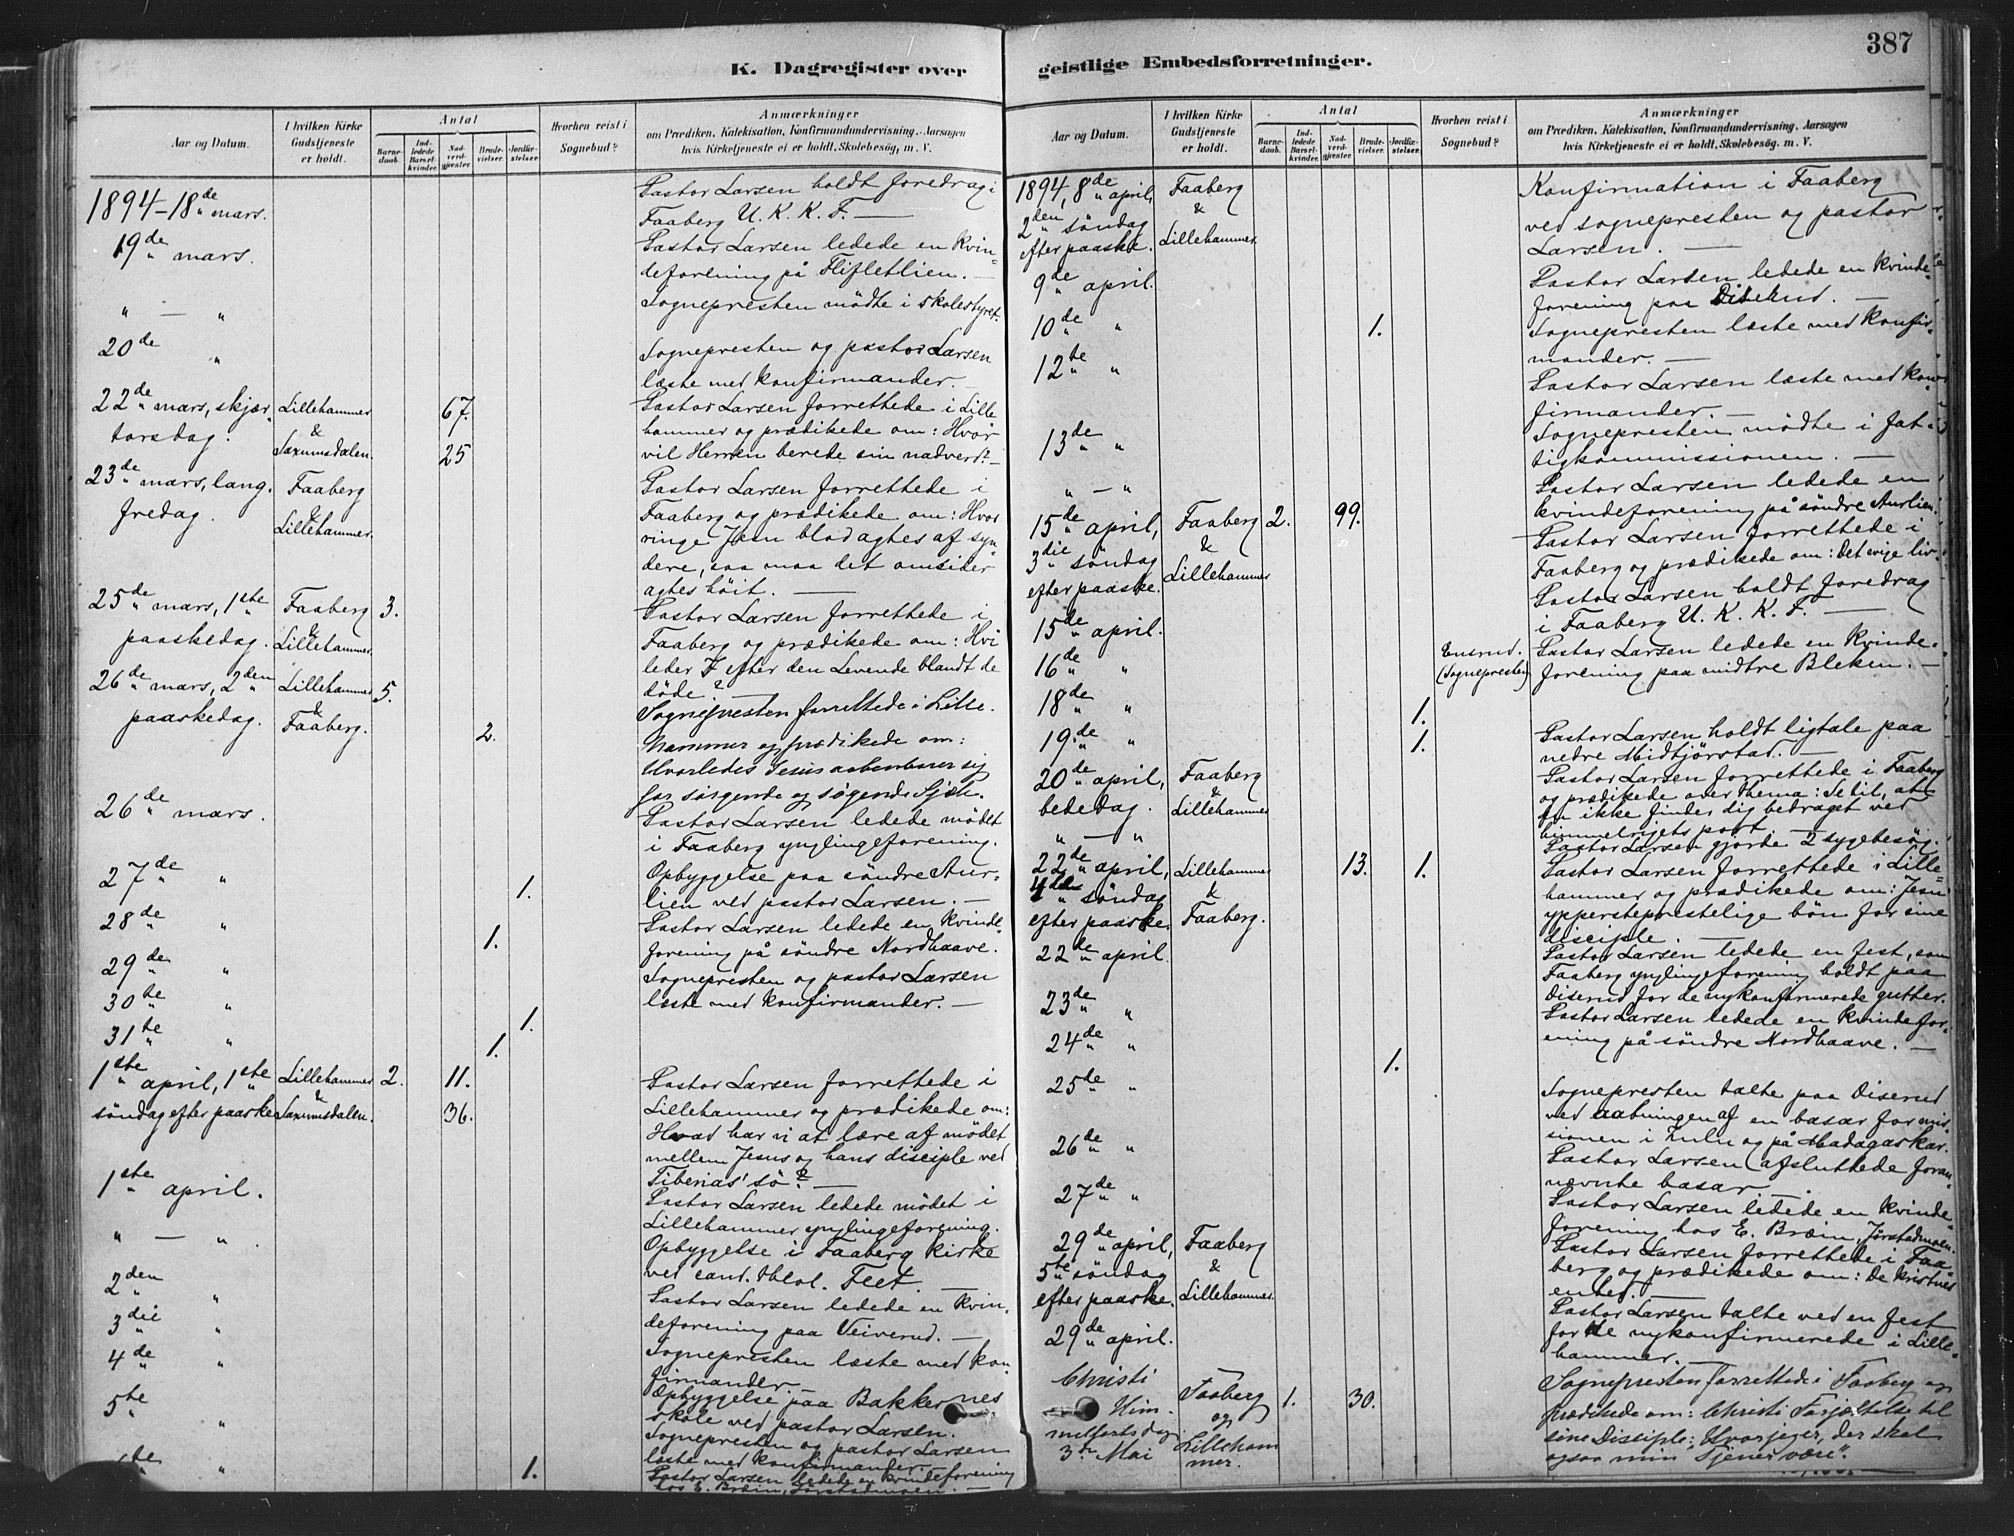 387
K. Dagregister over
Aar og Datum.
I hvilken Kirke Gudstjeneste er holdt.
Antal
Barnedaab.
Indledede Barselkvinder.
Nadverdgjester.
Brudevielser.
Jordfæstelser.
Hvorhen reist i Sognebud?
Anmærkninger
om Prædiken, Katekisation, Konfirmandundervisning, Aarsagen
hvis Kirketjeneste ei er holdt, Skolebesøg, m. V.
1894-18de mars.
Pastor Larsen holdt foredrag i
Faaberg U. K. K. F. —
19de mars.
Pastor Larsen ledede en kvin-
deforening på Flifletlien. —
" — "
Sognepresten mødte i skolestyret.
20de "
Sognepresten og pastor Larsen
læste med konfirmander. —
22de mars, skjær-
torsdag.
Lillehammer 67.
&
Saxumsdalen. 25
Pastor Larsen forrettede i Lille
hammer og prædikede om: Hvor
vil Herren berede sin nadverd? —
23de mars, lang-
fredag.
Faaberg
&
Lillehammer.
Pastor Larsen forrettede i
Faaberg og prædikede om: Hvor
ringe Jesu blod agtes af syn-
dere, saa maa det omsider
agtes høit. —
25de mars, 1ste
paaskedag.
Faaberg 3.
&
Lillehammer.
Pastor Larsen forrettede i
Faaberg og prædikede om: Hvi
leder I efter den Levende blandt de
døde? —
26de mars, 2den
paaskedag.
Lillehammer 5.
&
Faaberg. 2.
Sognepresten forrettede i Lille-
hammer og prædikede om:
Hvorledes Jesus aabenbarer sig
for sørgende og søgende Sjæle.
26de mars.
Pastor Larsen ledede mødet
i Faaberg ynglingeforening.
27de " 1.
Opbyggelse paa søndre Aur-
lien ved pastor Larsen. —
28de " 1.
Pastor Larsen ledede en kvinde-
forening på søndre Nordhaave.
29de "
Sognepresten og pastor Larsen
læste med konfirmander. —
30te " 1.
31te " 1.
1ste april, 1ste
søndag efter paaske
Lillehammer 2. 11.
&
Saxumsdalen. 36.
Pastor Larsen forrettede i
Lillehammer og prædikede om:
Hvad har vi at lære af mødet
mellem Jesus og hans disciple ved
Tiberias' sø? —
1ste april.
Pastor Larsen ledede mødet i
Lillehammer ynglingeforening.
" — "
Opbyggelse i Faaberg kirke
ved cand. theol. Feet. —
2den "
Pastor Larsen ledede en kvin-
deforening paa Veiverud. —
3die "
4de "
Sognepresten læste med kon-
firmander.
5te "
Opbyggelse paa Bakkernes
skole ved pastor Larsen.
Sognepresten og pastor Larsen
læste med konfirmander.
1.
Pastor Larsen ledede en kvindeforening
hos E. Bræin, Jørstadmoen. —
geistlige Embedsforretninger.
Aar og Datum.
I hvilken Kirke Gudstjeneste er holdt.
Antal
Barnedaab.
Indledede Barselkvinder.
Nadverdgjester.
Brudevielser.
Jordfæstelser.
Hvorhen reist i Sognebud?
Anmærkninger
om Prædiken, Katekisation, Konfirmandundervisning, Aarsagen
hvis Kirketjeneste ei er holdt, Skolebesøg, m. V.
1894, 8de april,
2den søndag
efter paaske.
Faaberg
&
Lillehammer.
Konfirmation i Faaberg
ved sognepresten og pastor
Larsen. —
9de april.
Pastor Larsen ledede en kvinde-
forening paa Diserud. —
10de " 1.
Sognepresten læste med konfir-
mander. —
12te "
Pastor Larsen læste med kon-
firmander. —
13de "
Sognepresten mødte i fat-
tigkommissionen. —
" — "
Pastor Larsen ledede en
kvindeforening på søndre Aurlien.
15de april,
3die søndag
efter paaske.
Faaberg 2. 99.
&
Lillehammer
Pastor Larsen forrettede i
Faaberg og prædikede om: Det evige liv.
15de april.
Pastor Larsen holdt foredrag
i Faaberg U. K. K. F. —
16de "
Pastor Larsen ledede en kvinde-
forening paa midtre Bleken. —
Ensrud.
(Sognepresten)
18de " 1.
19de " 1.
Pastor Larsen holdt ligtale paa
nedre Midtjørstad. —
20de april,
bededag.
Faaberg
&
Lillehammer
Pastor Larsen forrettede i Faaberg
og prædikede over thema: Se til, at
du ikke finder dig bedraget ved
himmelrigets port.
" — "
Pastor Larsen gjorde 2 sygebesøg.
22de april,
4de søndag
efter paaske.
Lillehammer 13. 1.
&
Faaberg.
Pastor Larsen forrettede i Lille-
hammer og prædikede om: Jesu
ypperstepræstelige bøn for sine
disciple. —
22de april.
Pastor Larsen ledede en fest, som
Faaberg ynglingeforening holdt paa
Diserud for de nykonfirmerede gutter.
23de "
Pastor Larsen ledede en kvindefor-
ening på søndre Nordhaave. —
24de " 1.
25de "
Sognepresten talte paa Diserud
ved aabningen af en basar for mis-
sionen i Zulu og på Madagaskar.
26de "
Pastor Larsen afsluttede foran-
nævnte basar.
27de "
Pastor Larsen ledede en kvinde-
forening hos E. Bræin, Jørstadmoen.
29de april,
5te søndag
efter paaske.
Faaberg
&
Lillehammer.
Pastor Larsen forrettede i Faa-
berg og prædikede om: De kristnes
enhed. —
29de april.
Pastor Larsen talte ved en fest
for de nykonfirmerede i Lille-
hammer. —
Christi
Him-
melfartsdag
3de Mai
Faaberg 1. 30.
og
Lilleham
mer.
Sognepresten forrettede i Faaberg og
prædikede om: Christi Forjættelse til
sine Disciple: Hvor jeg er, der skal
ogsaa min Tjener være".